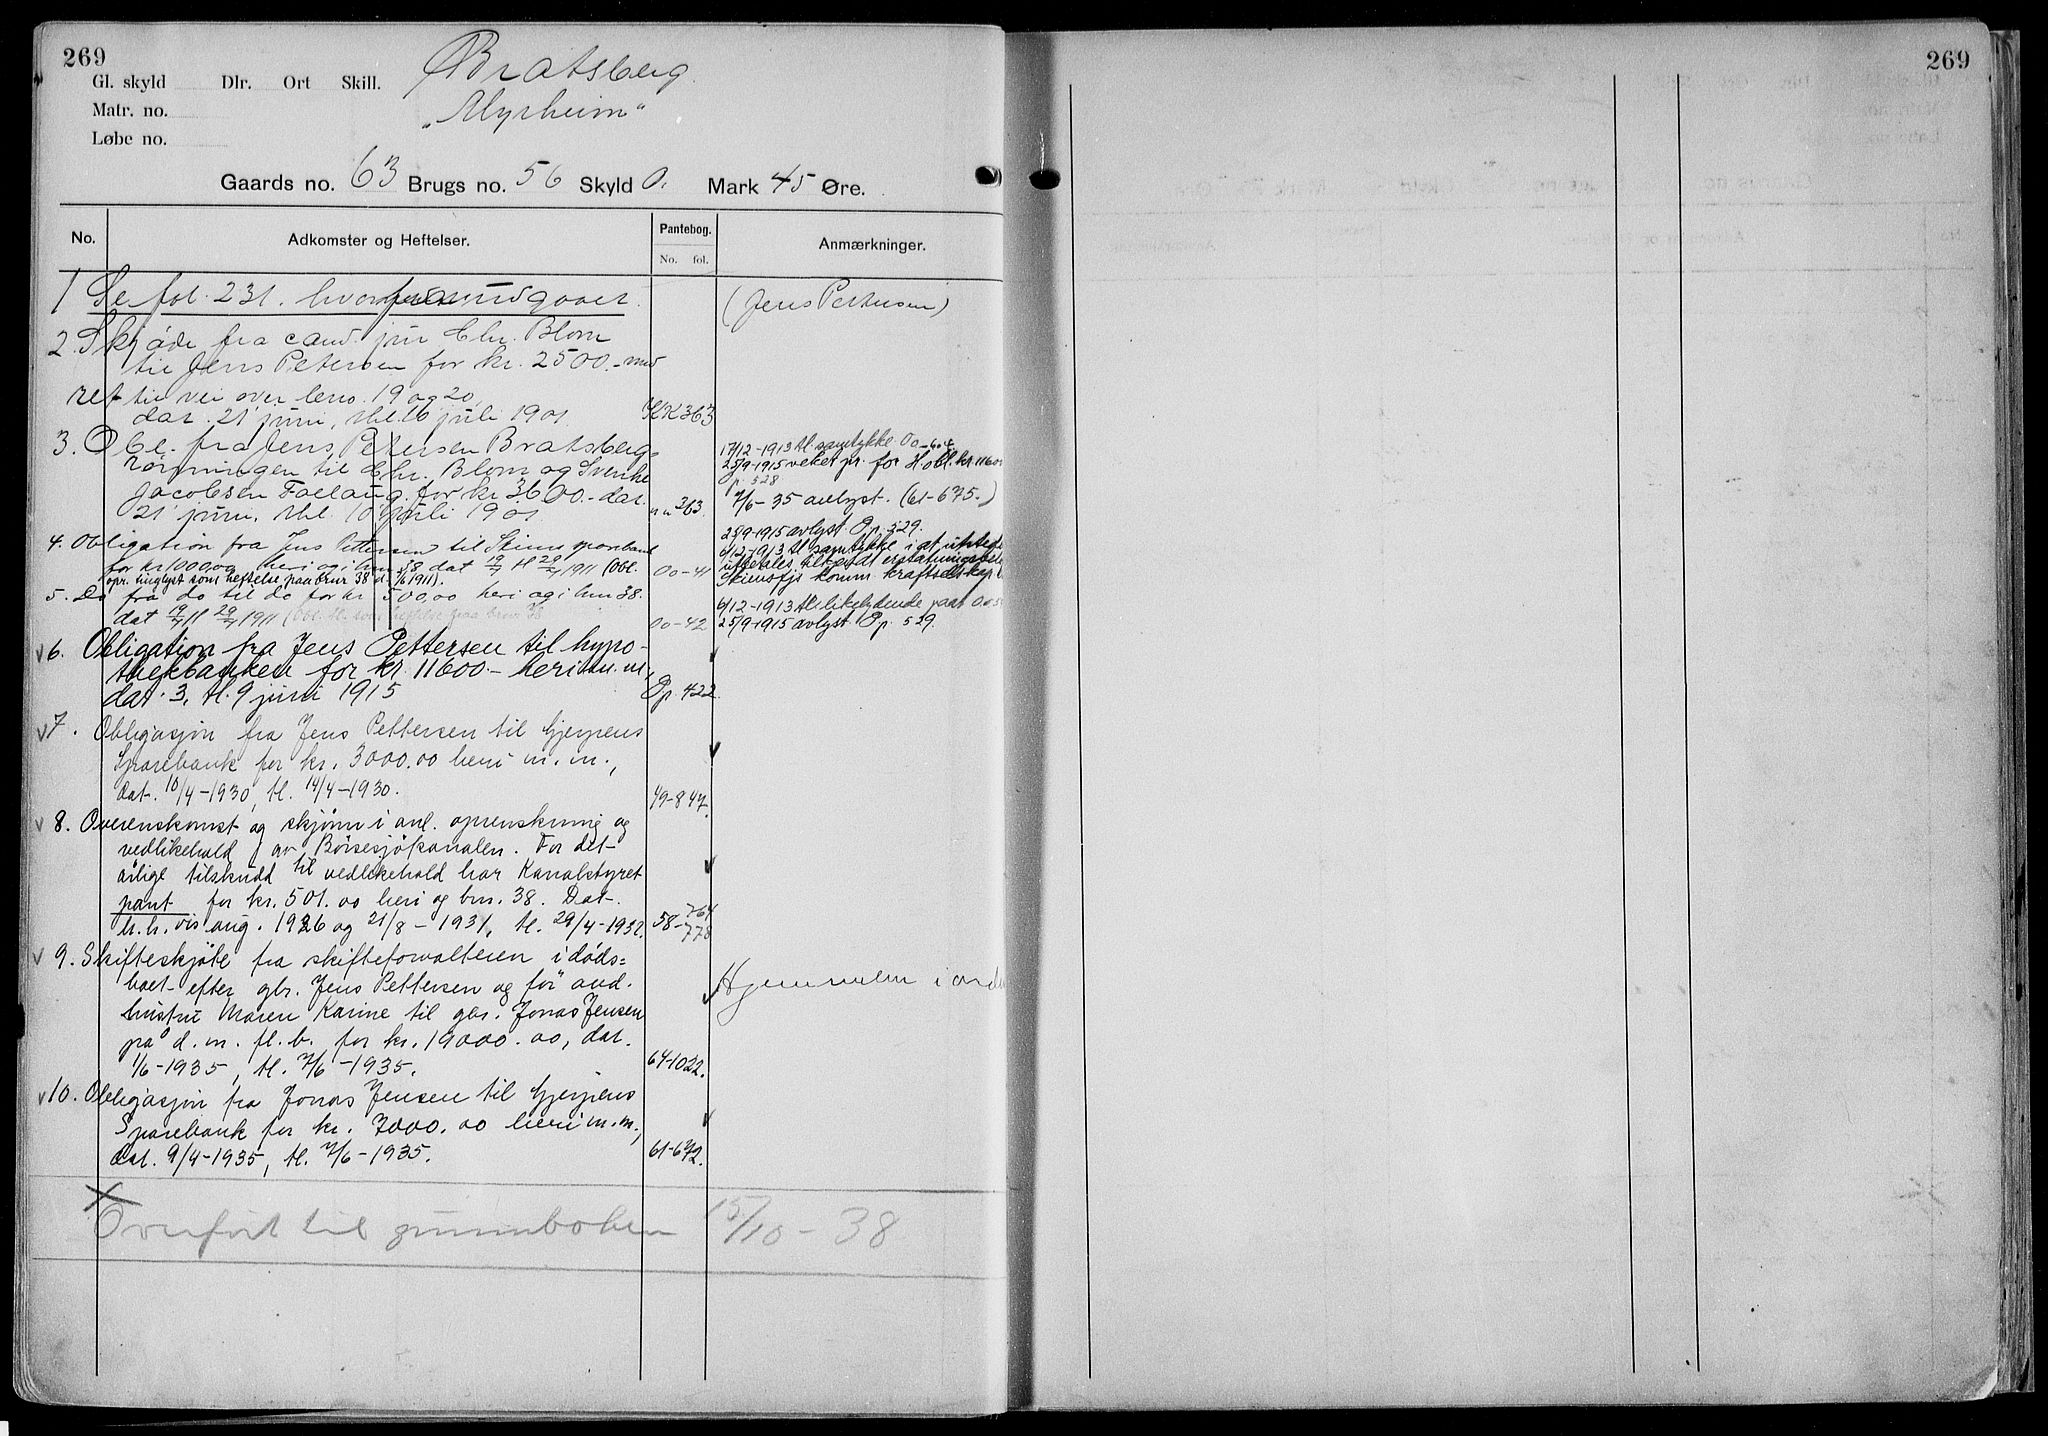 269
Bratsberg.
Gl. skyld Dlr. Ort Skill.
Matr. no.
„Myrheim“
Løbe no.
Gaards no. 63 Brugs no. 56 Skyld 0. Mark 45 Øre.
No. Adkomster og Heftelser. Pantebog. Anmærkninger.
No. fol.
1 Se fol. 231. hvorfra udgaaet. (Jens Pettersen)
2. Skjøde fra cand. jur Chr. Blom
til Jens Petersen for kr. 2500.- med
ret til vei over lbno. 19 og 20,
dat. 21 juni, thl. 16 juli 1901. KK 363
3. Obl. fra Jens Petersen Bratsberg-
til Chr. Blom og Sverike
Jacobsen Faelaug. for kr. 3600.- dat.
21 juni, thl. 10 juli 1901. " " 263.
17/12-1913 tl. samtykke Oo-604
25/9-1915 veket pr. for H. obl. kr. 11600
Op. 528
7/6-35 avlyst. (61-675.)
4. Obligation fra Jens Pettersen til Skiens sparebank
for kr 1000,00 heri og i bnr 38 dat 19/7 tl 20/7 1911 (Obl.
opr. tinglyst som heftelse paa brnr 38 d. /6 1911). Oo-41
25/9-1915 avlyst. Op. 529.
6/12-1913 tl. samtykke i at utstede
utbetales tilstaadt erstatningsbeløp
Skiensfjs komm. kraftselskap
5. Do fra do til do for kr 500,00 heri og i bnr 38.
dat 19/7 tl 20/7 1911 (Obl. tl. som heftelse paa brnr 38 Oo-42
6/12-1913 tl. likelydende paat. Oo
25/9-1915 avlyst. Op. 529.
6. Obligation fra Jens Pettersen til hypo-
thekbanken for kr. 11600.- heri m. m.,
dat. 3, tl. 9 juni 1915 Op. 422
7. Obligasjon fra Jens Pettersen til Gjerpens
Sparebank for kr. 3000.00 heri m. m.,
dat. 10/4-1930, tl. 14/4-1930. 49-847.
8. Overenskomst og skjønn i anl. oprenskning og
vedlikehold av Børsesjøkanalen. For det
årlige tilskudd til vedlikehold har Kanalstyret
pant for kr. 501.00 heri og bnr. 38. Dat.
h.h.vis aug. 1926 og 21/8-1931, tl. 29/4-1932. 58-764/778
9. Skifteskjøte fra skifteforvalteren i døds=
boet efter gbr. Jens Pettersen og før avd.
hustru Maren Karine til gbr. Jonas Jensen
på d. m. fl. b. for kr. 19000.00, dat.
1/6-1935, tl. 7/6-1935. 64-1022.
Hjemmelen i orden
10. Obligasjon fra Jonas Jensen til Gjerpens
Sparebank for kr. 7000.00 heri m. m.,
dat. 9/4-1935, tl. 7/6-1935. 61-672.
Overført til grunnboken 15/10-38
269